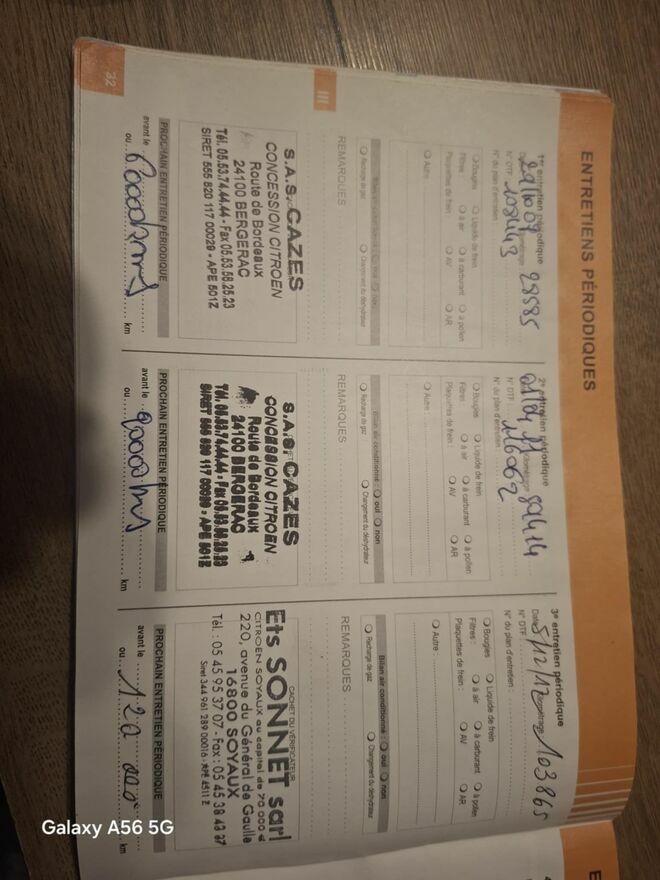 ENTRETIENS PÉRIODIQUES
1er entretien périodique
28585
N° OTF :
108443
N° du plan d'entretien :
Bougies Liquide de frein
Filtres : à air à carburant à pollen
Plaquettes de frein : AV AR
Autre :
Recharge de gaz Changement du déshydrateur
REMARQUES
S.A.S. CAZES
CONCESSION CITROEN
Route de Bordeaux
24100 BERGERAC
Tél. 05.53.74.44.44 - Fax 05.53.58.25.23
SIRET 555 820 117 00029 - APE 501Z
PROCHAIN ENTRETIEN PÉRIODIQUE
avant le
ou 60000kms km
2e entretien périodique
89414
N° DTF :
116062
N° du plan d'entretien :
Bougies Liquide de frein
Filtres : à air à carburant à pollen
Plaquettes de frein : AV AR
Autre :
Bilan air conditionné : oui non
Recharge de gaz Changement du déshydrateur
REMARQUES
S.A.S. CAZES
CONCESSION CITROEN
Route de Bordeaux
24100 BERGERAC
Tél. 05.53.74.44.44 - Fax 05.53.58.25.23
SIRET 555 820 117 00029 - APE 501Z
PROCHAIN ENTRETIEN PÉRIODIQUE
avant le
ou 90000kms km
3e entretien périodique
Date 5/12/12 Kilométrage 103865
N° DTF :
N° du plan d'entretien :
Bougies Liquide de frein
Filtres : à air à carburant à pollen
Plaquettes de frein : AV AR
Autre :
Bilan air conditionné : oui non
Recharge de gaz Changement du déshydrateur
REMARQUES
CACHET DU VÉRIFICATEUR
Ets SONNET sarl
CITROEN SOYAUX au capital de 70 000 €
220, avenue du Général de Gaulle
16800 SOYAUX
Tél. : 05 45 95 37 07 - Fax : 05 45 38 43 37
Siret 344 961 289 00016 - APE 4511 Z
PROCHAIN ENTRETIEN PÉRIODIQUE
avant le
ou 120 000 km
III
32
Galaxy A56 5G